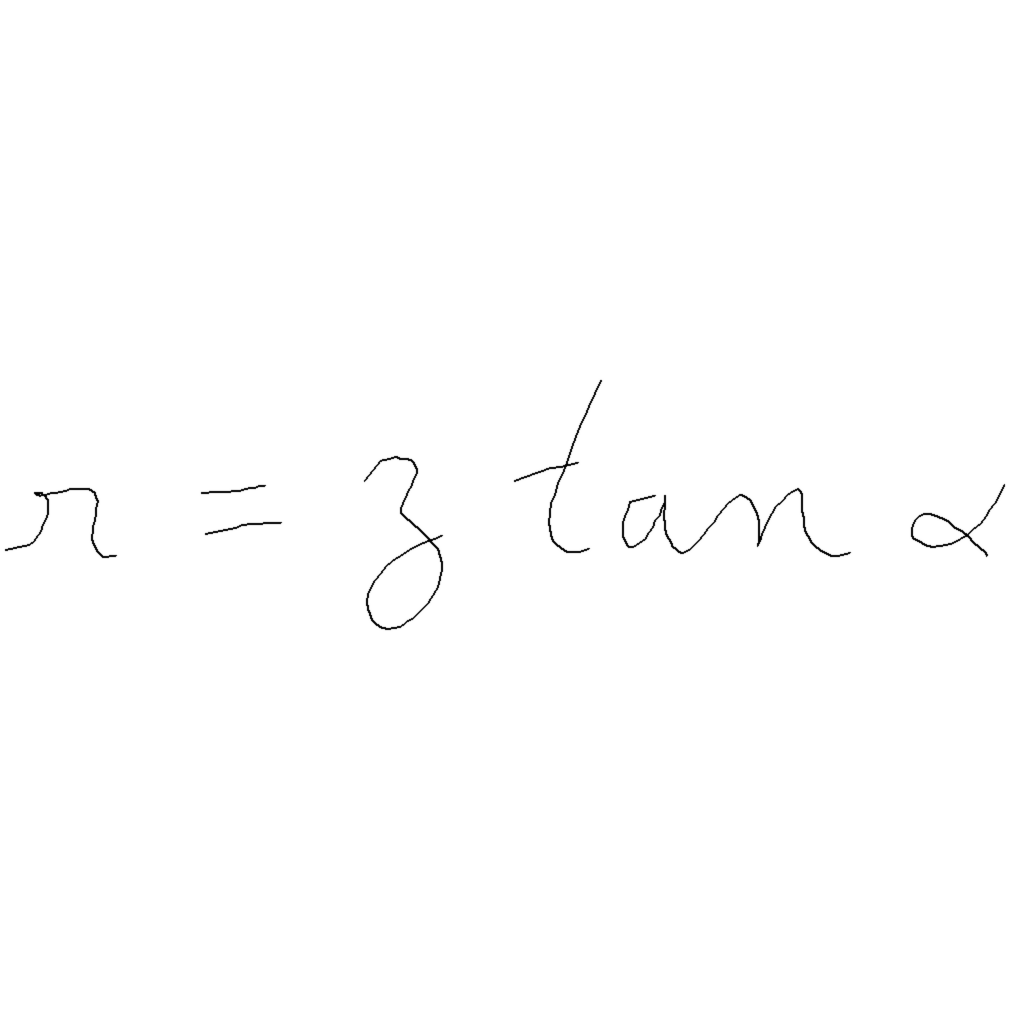 r = z tan α